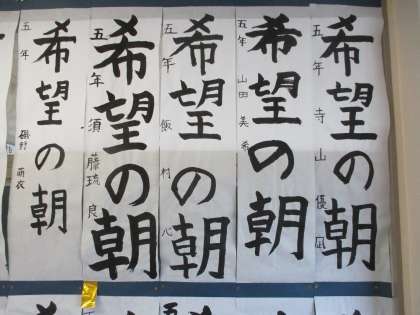 希望の朝
五年 寺山優凪
希望の朝
五年 山田美希
希望の朝
五年 飯村心
希望の朝
五年 須藤琉良
希望の朝
五年 萌衣